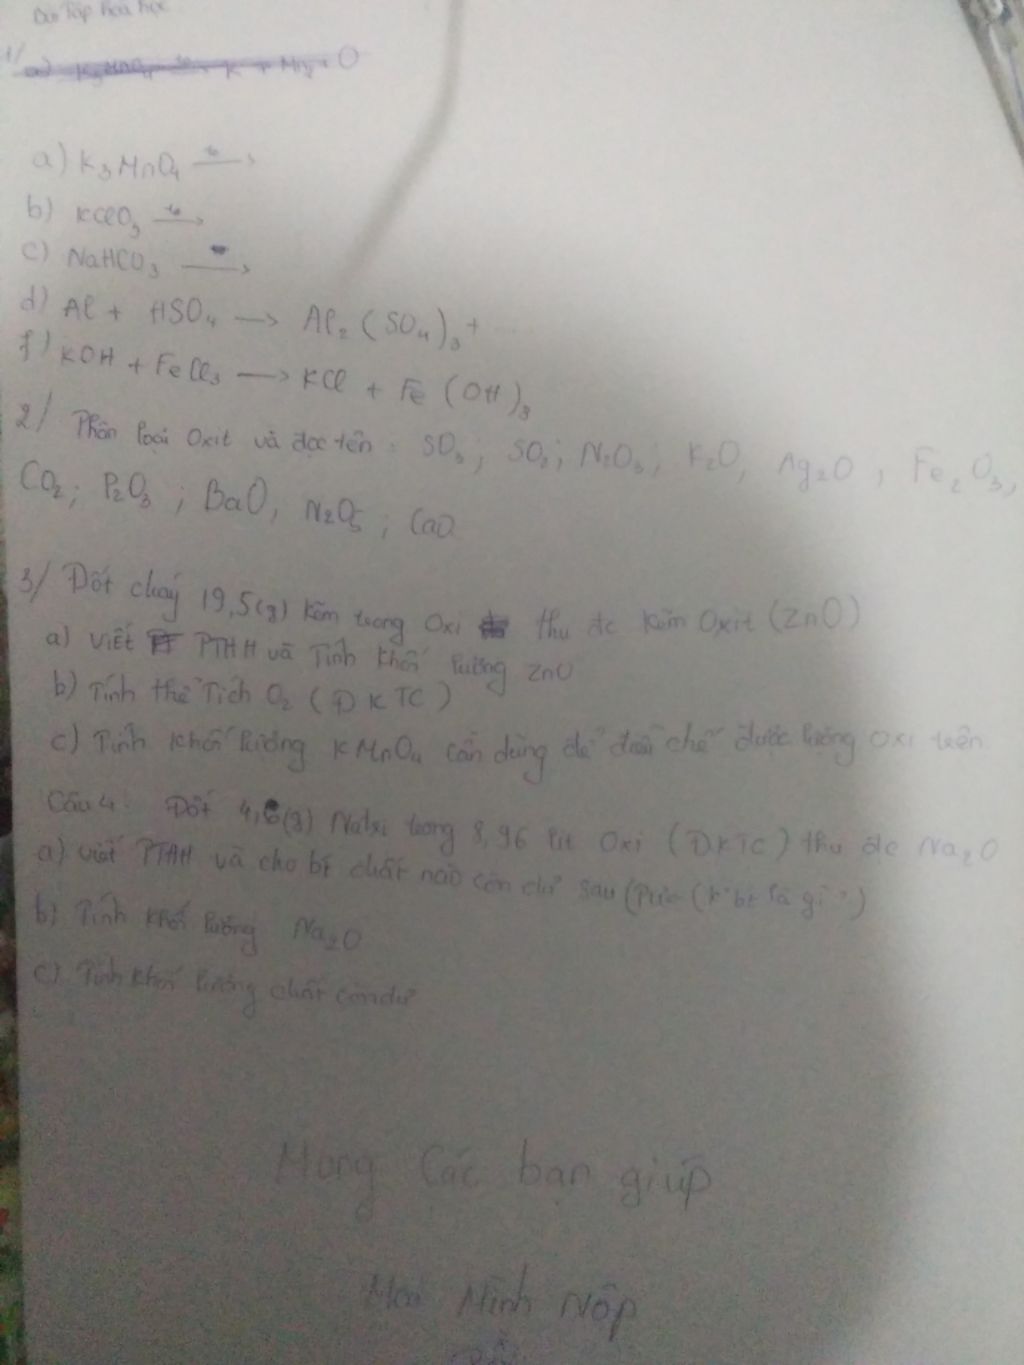 Bài Tập hóa học
1/
a) K3MnO4 to→ K + Mn + O
a) K3MnO4 to→
b) KClO3 to→
c) NaHCO3 →
d) Al + HSO4 → Al2(SO4)3 +
f) KOH + FeCl3 → KCl + Fe(OH)3
2/ Phân loại Oxit và đọc tên: SO3; SO2; N2O3; K2O, Ag2O, Fe2O3,
CO2; P2O3; BaO, N2O5; CaO
3/ Đốt cháy 19,5(g) kẽm trong Oxi thu đc kẽm Oxit (ZnO)
a) viết PTHH và Tính khối lượng ZnO
b) Tính thể Tích O2 (ĐKTC)
c) Tính khối lượng KMnO4 cần dùng để điều chế được lượng oxi trên
Câu 4: Đốt 4,6(g) Natri trong 8,96 lit oxi (ĐKTC) thu đc Na2O
a) viết PTHH và cho bt chất nào còn dư sau (Pứ (k bt là gì")
b) Tính khối lượng Na2O
c) Tính khối lượng chất còn dư
Mong Các bạn giúp
Mình Nộp